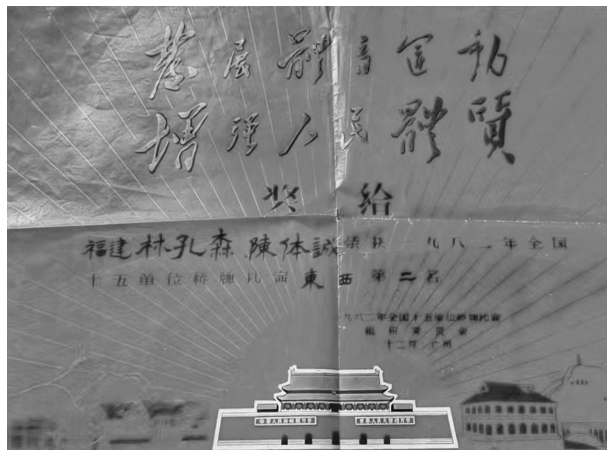 發展體育運動
增强人民體質
奖给
福建林孔森、陳体誠荣获一九八二年全国
十五单位桥牌比赛東西第二名
一九八二年全国十五单位桥牌比赛
组织委员会
十二月 广州